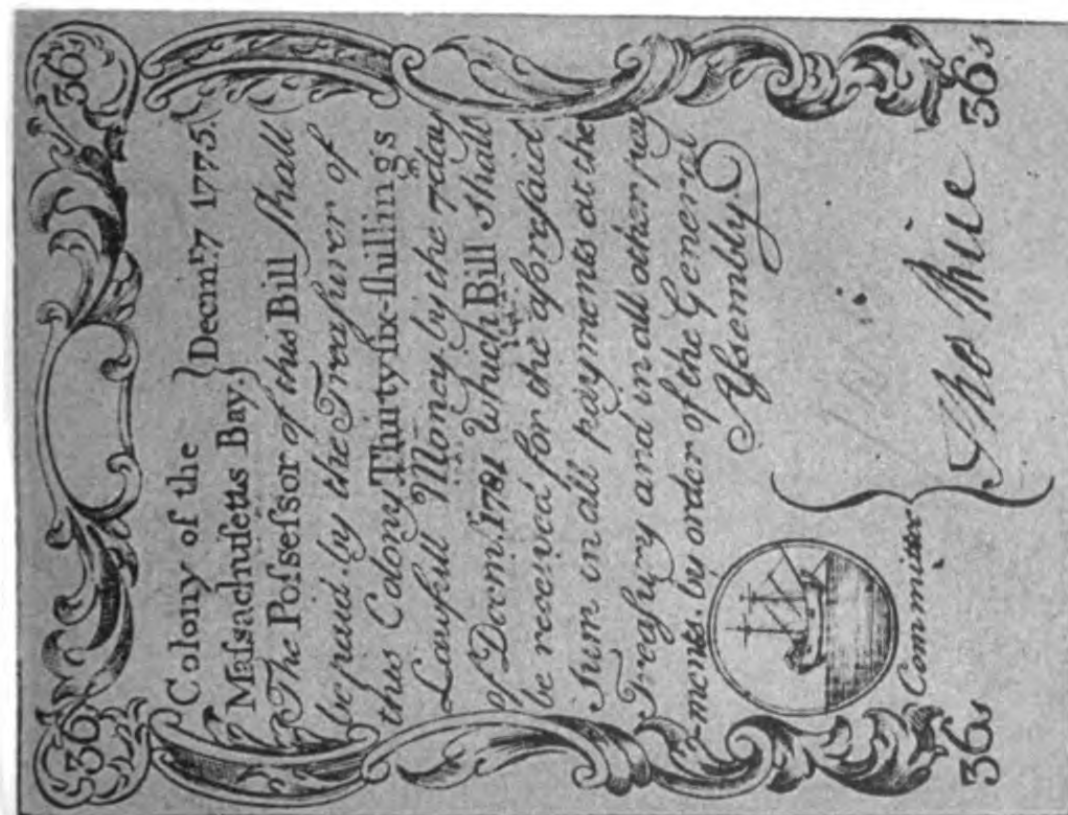 36 36s
Colony of the
Maſsachuſetts Bay. } Decm.r 7 1775.
The Poſseſsor of this Bill ſhall
be paid by the Treaſurer of
this Colony Thirty ſix-ſhillings
Lawfull Money by the 7 day
of Decm.r 1781 which Bill ſhall
be received for the aforeſaid
ſum in all payments at the
Treaſury and in all other pay
-ments by order of the General
Aſsembly
Committee
Tho
36s 36s